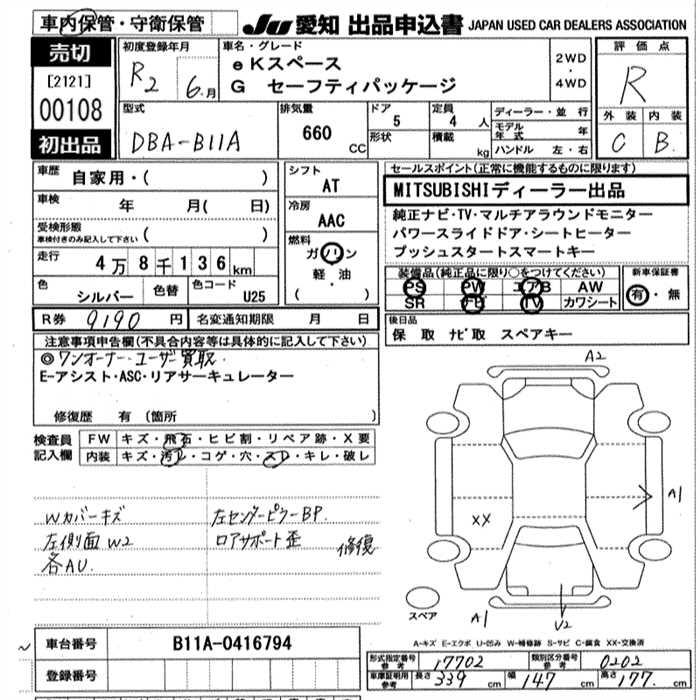 車内保管・守衛保管
JU 愛知 出品申込書 JAPAN USED CAR DEALERS ASSOCIATION
売切
[2121]
00108
初出品
初度登録年月
R2 6月
車名・グレード
eKスペース
G セーフティパッケージ
2WD
・
4WD
評価点
R
外装 内装
C B
型式
DBA-B11A
排気量
660 CC
ドア
5
形状
定員
4 人
積載
kg
ディーラー・並行
モデル年式 年
ハンドル 左・右
車歴
自家用・( )
車検
年 月( 日)
受検形態
車検付きのみ記入して下さい ( )
走行
4万8千136km
色
シルバー
色替
色コード
U25
シフト
AT
冷房
AAC
燃料
ガソリン
・
軽油
( )
R券 9190 円
名変通知期限 月 日
セールスポイント(正常に機能するものに限ります)
MITSUBISHIディーラー出品
純正ナビ・TV・マルチアラウンドモニター
パワースライドドア・シートヒーター
プッシュスタートスマートキー
装備品(純正品に限り○をつけてください)
PS PW エアB AW
SR ナビ TV カワシート
新車保証書
有・無
後日品
保 取 ナビ取 スペアキー
注意事項申告欄(不具合内容等は具体的に記入して下さい)
◎ワンオーナー・ユーザー買取
E-アシスト・ASC・リアサーキュレーター
修復歴 有 (箇所 )
検査員記入欄
FW キズ・飛石・ヒビ割・リペア跡・X要
内装 キズ・汚レ・コゲ・穴・スレ・キレ・破レ
Wカバーキズ
左側面W2
各AU.
左センターピラーBP.
ロアサポート歪 修復
A2
A1
XX
A1
V2
スペア
A-キズ E-エクボ U-凹み W-補修跡 S-サビ C-腐食 XX-交換済
車台番号 B11A-0416794
登録番号
形式指定番号 参考 17702
類別区分番号 参考 0202
車庫証明用 参考 長さ 339 幅 147 cm 高さ 177. cm